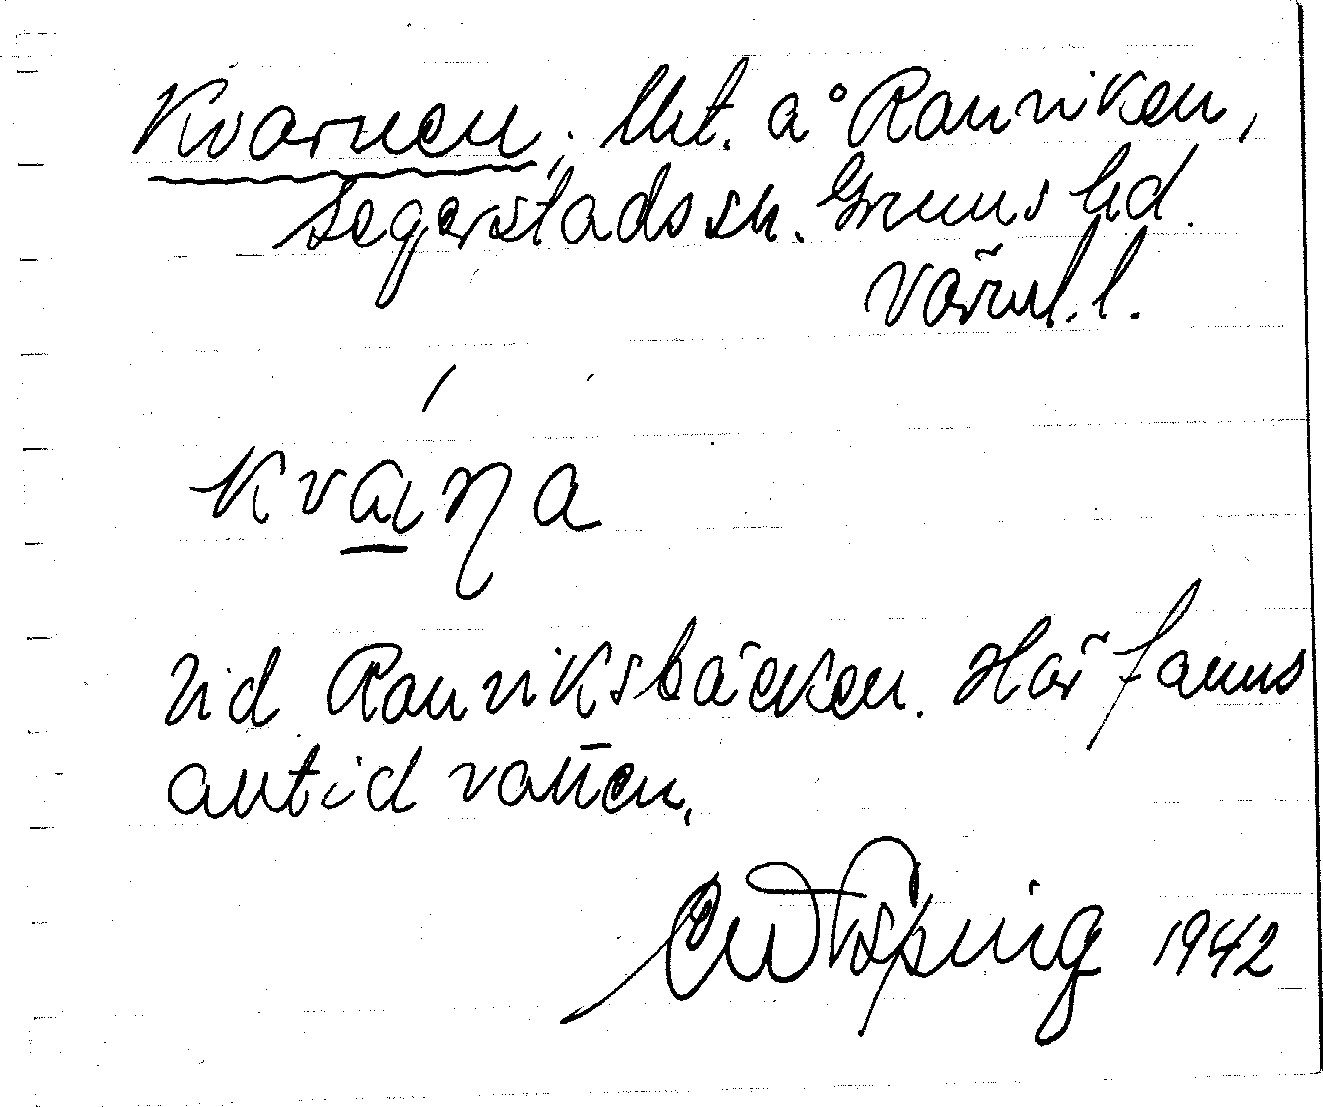 Kvarnen, Utt. å Ranviken,
Segerstads sn. Grums hd.
Värml. l.
kváņa
Vid Ranviksbäcken. Här fanns
alltid vatten.
1942